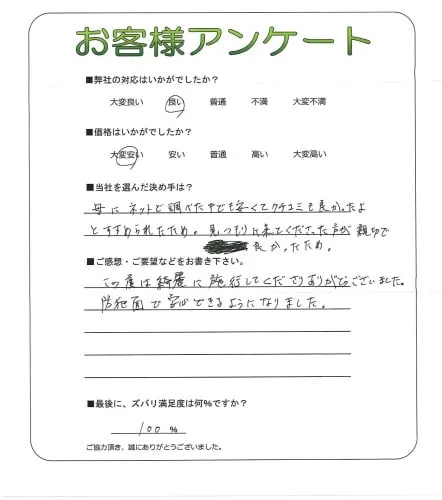 お客様アンケート
■弊社の対応はいかがでしたか?
大変良い 良い 普通 不満 大変不満
■価格はいかがでしたか?
大変安い 安い 普通 高い 大変高い
■当社を選んだ決め手は?
母にネットで調べた中でも安くてクチコミも良かったよ
とすすめられたため。見つもりに来てくださった方が親切で
良かったため。
■ご感想・ご要望などをお書き下さい。
この度は綺麗に施行してくださりありがとうございました。
防犯面で安心できるようになりました。
■最後に、ズバリ満足度は何%ですか?
100 %
ご協力頂き、誠にありがとうございました。